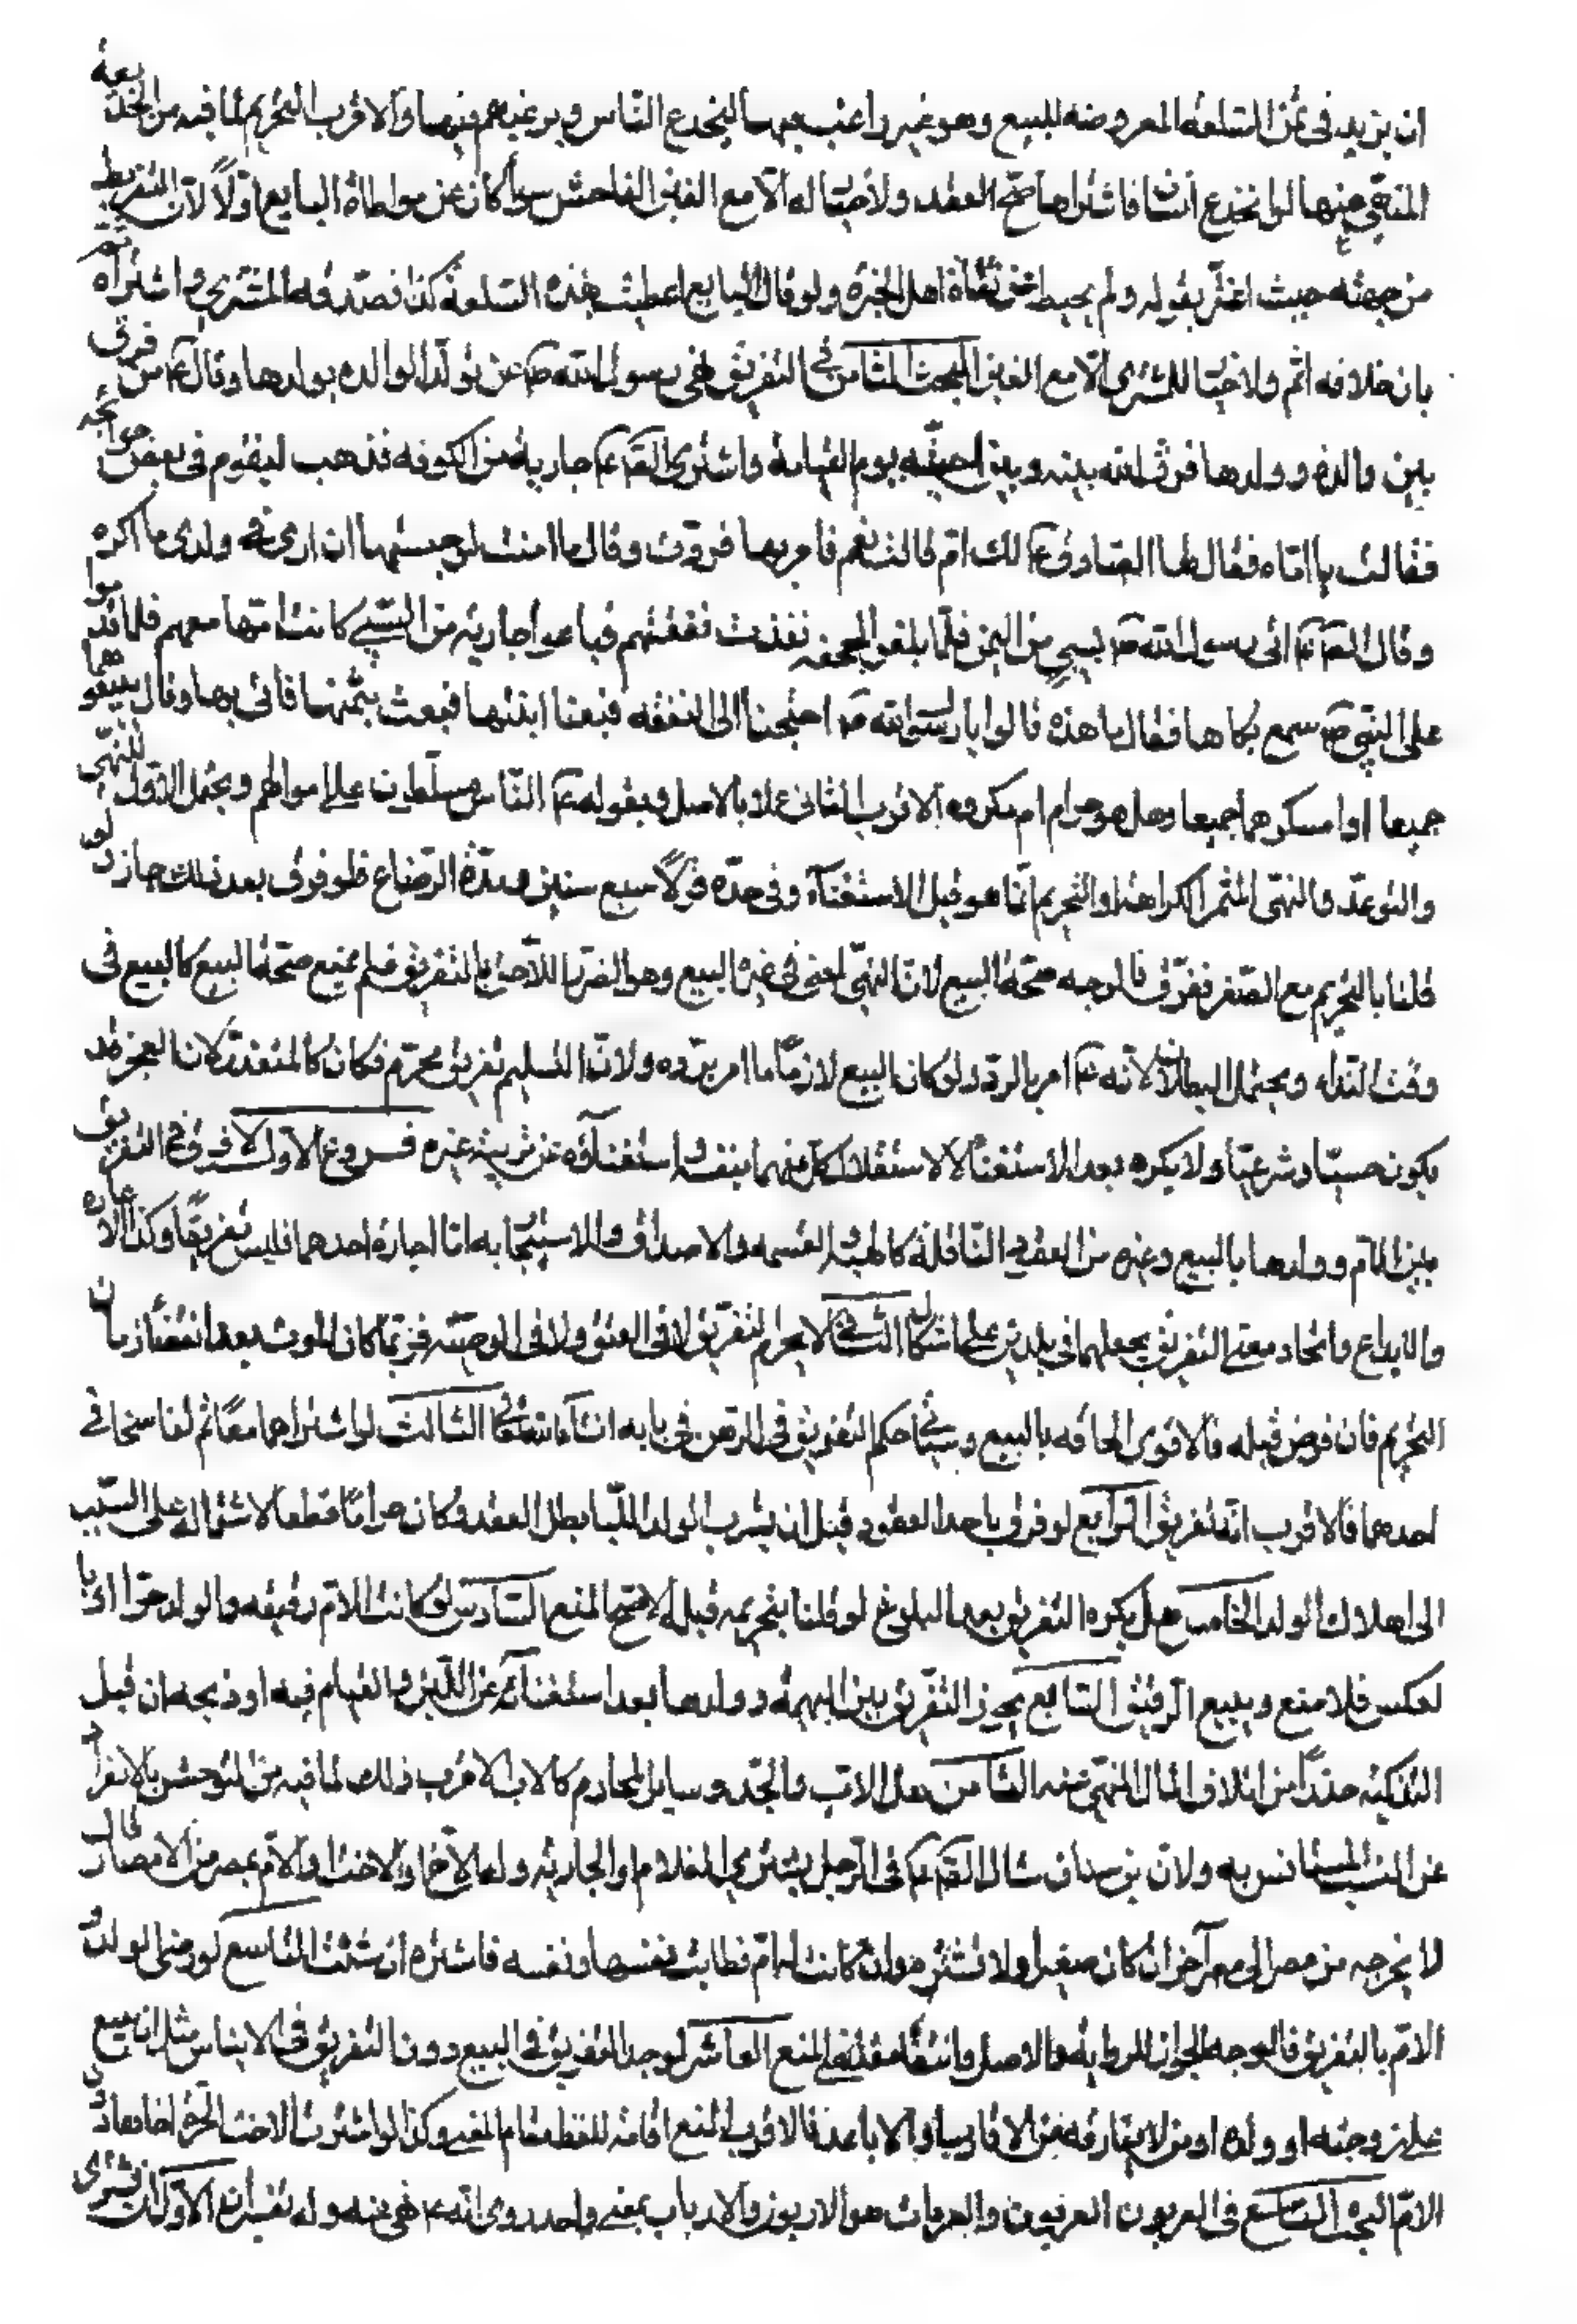 ان يزيد فى ثمن السلعة المعروضه للبيع وهو غير راغب فيها ليخدع الناس ويرغبهم فيها والاقرب التحريم لما فيه من الخديعة
المنهى عنها لو انخدع انسان فاشتراها صح العقد ولا خيار له الا مع الغبن الفاحش سواء كان عن مواطاة البايع اولا لان التفريط
من جهته حيث اغتر بقوله ولم يحط عن ثقاة اهل الخبرة ولو قال البايع اعطيت بهذه السلعة كذا فصدقه المشترى واشتراه ثم
بان خلافه اثم ولا خيار للمشترى الا مع الغبن البحث الثامن فى التفريق نهى رسول الله ص عن تولّه الوالده بولدها وقال ع من فرق
بين والدة وولدها فرق الله بينه وبين احبته يوم القيامة واشترى الصّ ع جارية من الكوفه فذهب ليقوم فى بعض حوائجه
فقالت يا اماه فقال لها الصادق ع الك ام قالت نعم فامر بها فردت وقال ما امنت لو حبستها ان ارى فى ولدى ما اكره
وقال الصّ ع اتى رسول الله ص بسبى من اليمن فلما بلغوا الجحفه نفدت نفقتهم فباعوا جارية من السبى كانت امها معهم فلما قدموا
على النبى ص سمع بكاها فقال ما هذه قالوا يا رسول الله ص احتجنا الى النفقه فبعنا ابنتها فبعث بثمنها فاتى بها وقال بيعوهما
جميعا او امسكوهما جميعا وهل هو حرام ام مكروه الاقرب الثانى عملا بالاصل وبقوله ع الناس مسلطون على اموالهم ويحتمل الاول للنهى
والتوعد والنهى المثمر الكراهة او التحريم انما هو قبل الاستغناء وفى حده قولا سبع سنين ومدة الرضاع فلو فرق بعد ذلك جاز ولو
قلنا بالتحريم مع الصغر ففرق فالوجه صحة البيع لان النهى لمعنى فى غير البيع وهو الضرر اللاحق بالتفريق فلم يمنع صحة البيع كالبيع فى
وقت النداء ويحتمل البطلان لانه ع امر بالرد ولو كان البيع لازما ما امر برده ولان التسليم تفريق محرم فكان كالمتعذر لان العجز قد
يكون حسيا وشرعيا ولا يكره بعد الاستغناء لاستقلال كل منهما بنفسه واستغنائه عن تربية غيره فروع الاول لا فرق فى التفريق
بين الام وولدها بالبيع وغيره من العقود الناقلة كالهبة والقسمه والاصداق والاستيجار به اما اجارة احدهما فليس تفريقا وكذا الاعاره
والايداع واتحاد معنى التفريق بجعلهما فى بلدين على اشكال الثانى لا يحرم التفريق لا فى العتق ولا فى الوصيه فربما كان الموت بعد انقضاء زمان
التحريم فان فرض قبله فالاقوى الحاقه بالبيع وسياتى حكم التفريق فى الرهن فى بابه انشاء الله تعالى الثالث لو اشتراهما معا ثم تفاسخا فى
احدهما فالاقرب انه تفريق الرابع لو فرق باحد العقود قبل ان يشرب الولد اللبا بطل العقد وكان حراما قطعا لاشتماله على السبب
الى اهلاك الولد الخامس هل يكره التفريق بعد البلوغ لو قلنا بتحريمه قبله الاصح المنع السادس لو كانت الام رقيقه والولد حرا او با
لعكس فلا منع ويبيع الرقيق السابع يجوز التفريق بين البهيمه وولدها بعد استغنائه عن اللبن والقيام فيه او ذبحه ان قبل
التذكيه حذرا من اتلاف المال المنهى عنه الثامن هل الاب والجد وساير المحارم كالام الاقرب ذلك لما فيه من التوحش بالانفراد
عن النسب المستانس به ولان بن سنان سال الصّ ع فى الرجل يشترى الغلام او الجاريه وله اخ او اخت او ام بمصر من الامصار قال
لا يخرجه من مصر الى مصر آخر ان كان صغيرا ولا تشتره وان كانت له ام فطابت نفسها ونفسه فاشتره ان شئت التاسع لو رضى الولد و
الام بالتفريق فالوجه الجواز للرواية والاصل وانتفاء مقتضى المنع العاشر لو وجد التفريق فى البيع دون التفريق فى الايناس مثل ان يبيع
على زوجته او ولده او من لا يفارقه من الاقارب او الاباعد فالاقرب المنع اقامة للفظ مقام المعنى وكذا لو اشترت الاخت الحره اخا
الام البحث التاسع فى العربون العربون والعربان هو الاربون والاربان بمعنى واحد روى انه ع نهى عنه وله تفسيران الاول ان يشترى